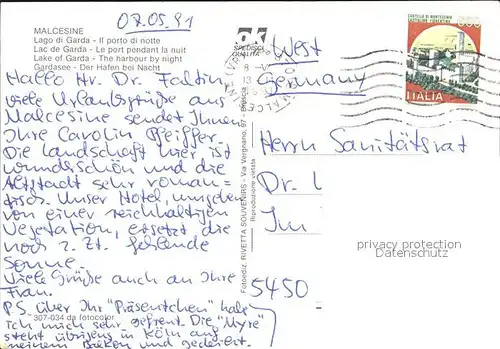 07.05.91
MALCESINE
Lago di Garda - Il porto di notte
Lac de Garda - Le port pendant la nuit
Lake of Garda - The harbour by night
Gardasee - Der Hafen bei Nacht
Hallo Hr. Dr. Faltin,
viele Urlaubsgrüße aus
Malcesine sendet Ihnen
Ihre Carolin Pfeiffer.
Die Landschaft hier ist
wunderschön und die
Altstadt sehr roman=
tisch. Unser Hotel, umgeben
von einer reichhaltigen
Vegetation, ersetzt die
noch z. Zt. fehlende
Sonne.
Viele Grüße auch an Ihre
Frau.
PS über Ihr "Präsentchen" habe
ich mich sehr gefreut. Die "Myre"
steht übrigens in Köln auf
meinem Balkon und gedeiht.
307-034 da fotocolor
Fotoediz. RIVETTA SOUVENIRS - Via Vergnano, 97 - Brescia
Riproduzione vietata
OK
SPEDISCI
QUALITÀ
West
Germany
CASTELLO DI MONTECCHIO
CASTIGLION FIORENTINO
ITALIA
Herrn Sanitätsrat
Dr. I
Im
5450
privacy protection
Datenschutz